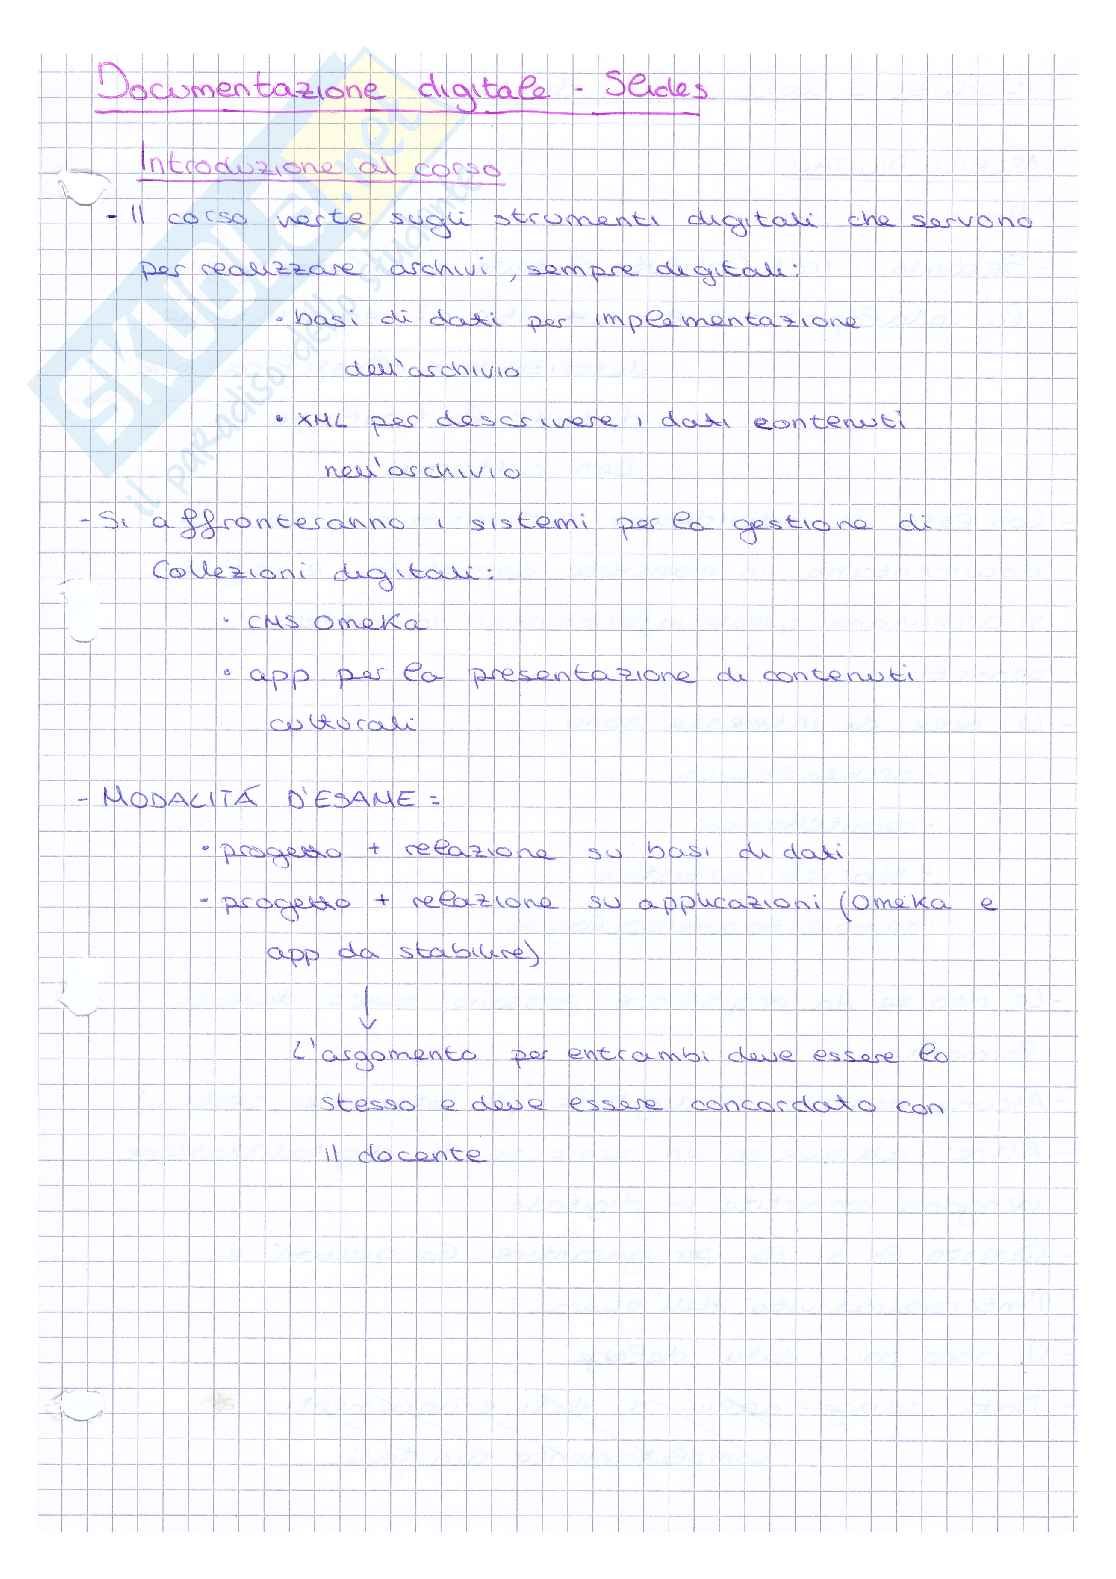 Documentazione digitale - Slides
Introduzione al corso
- Il corso verte sugli strumenti digitali che servono
per realizzare archivi, sempre digitali:
• basi di dati per implementazione
dell'archivio
• XML per descrivere i dati contenuti
nell'archivio
- Si affronteranno i sistemi per la gestione di
Collezioni digitali:
• CMS Omeka
• app per la presentazione di contenuti
culturali
- MODALITÁ D'ESAME =
• progetto + relazione su basi di dati
- progetto + relazione su applicazioni (Omeka e
app da stabilire)
↓
L'argomento per entrambi deve essere lo
stesso e deve essere concordato con
il docente
SKUOLA.net
il paradiso dello studente